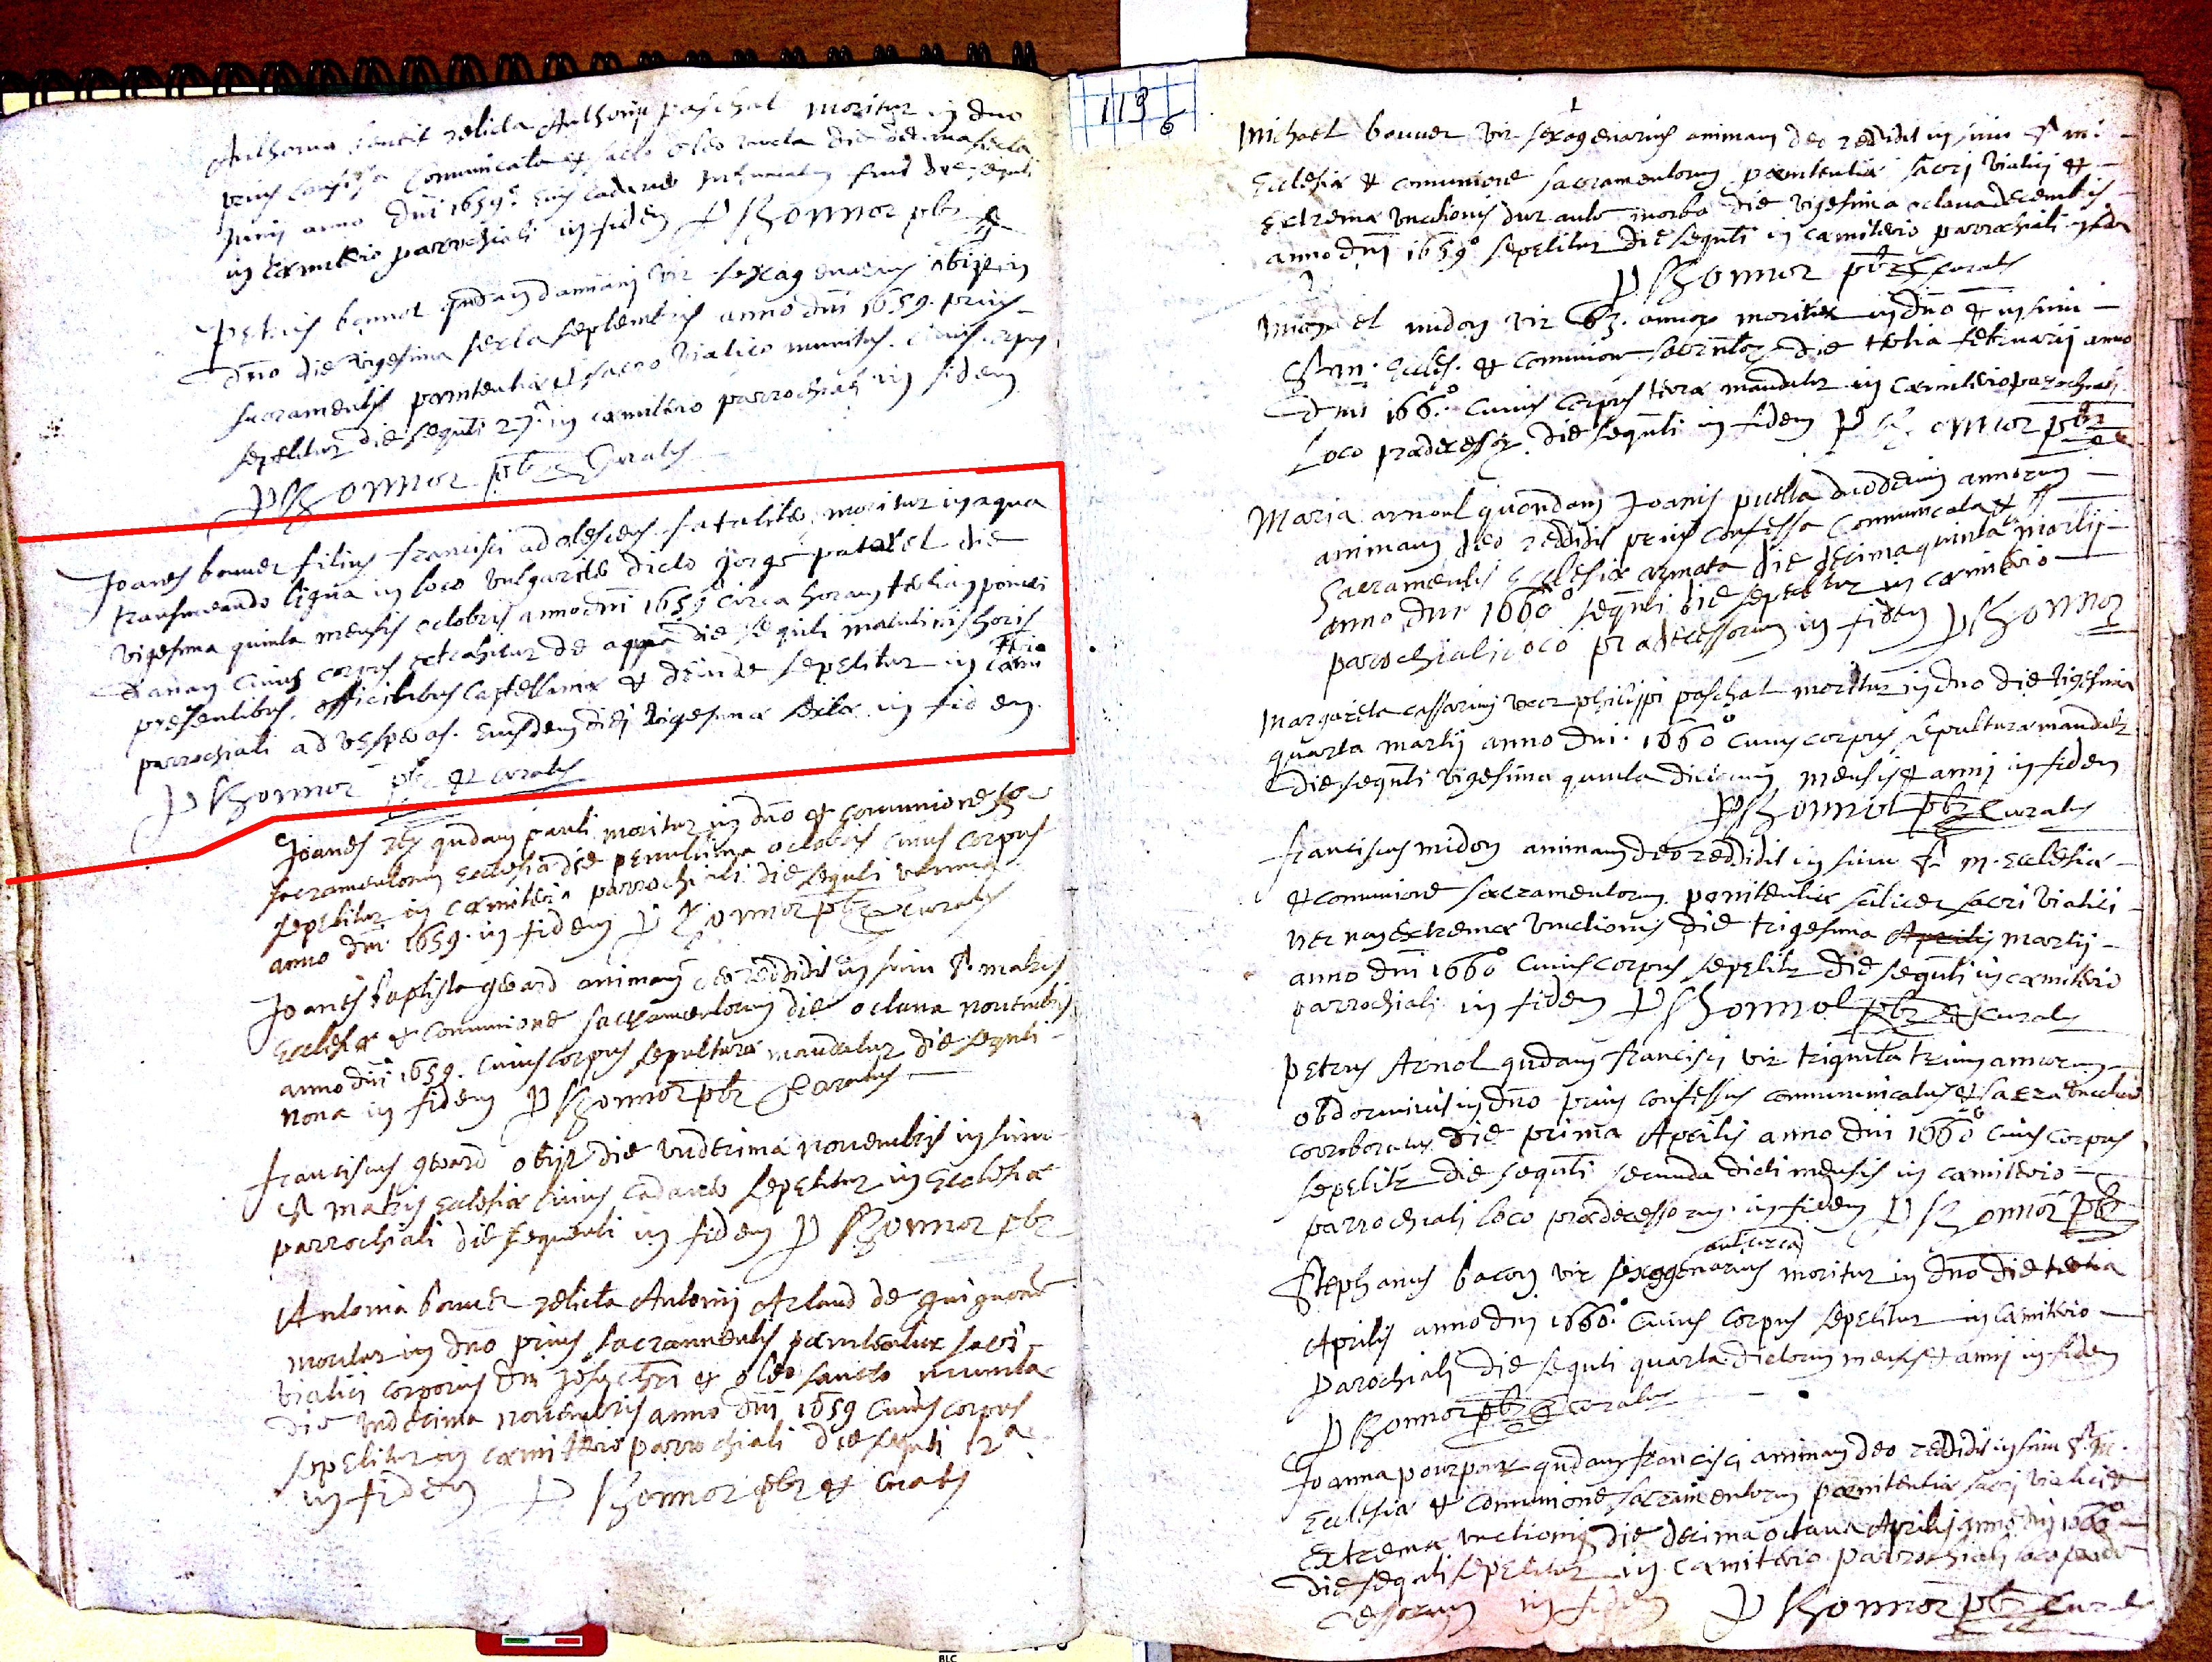 Anthona relicta Anthonij paschal moritur in dno
prius confessa communicata et sacro oleo uncta die decima sexta
Junij anno dni 1659° eius cadaver fuit die sequti
in cæmiterio parrochiali in fidem P Rhonnor pbr
Petrus bonnot qndam damiani vir sexagenarius obijt in
dno die vigesima sexta septembris anno dni 1659. prius
sacramentis pœnitentiæ et sacro viatico munitus. cuius corpus
sepelitur die sequti 27ª in cæmiterio parrochiali in fidem
P Rhonnor pbr Curatus
Joanes bouuer filius francisci adolescens fataliter moritur in aqua
transmeando ligna in loco vulgariter dicto gorge patarel die
vigesima quinta mensis octobris anno dni 1659° circa horam tertiam pomeri
dianam cuius corpus extrahitur de aqua die sequti matutinis horis
presentibus officialibus castellaniæ et deinde sepelitur in cæmi
terio
parrochiali ad vesperas. eiusdem diei vigesimæ sextæ in fidem.
P Rhonnor pbr et curatus
Joanes qndam pauli moritur in dno et communione
sacramentorum Ecclesiæ die penultima octobris cuius corpus
sepelitur in cæmiterio parrochiali die sequti ultima
anno dni 1659. in fidem P Rhonnor pbr Curatus
Joanes baptista gerard animam deo reddidit in sinu Sᵃ matris
Ecclesiæ et communione sacramentorum die octava novembris
anno dni 1659. cuius corpus sepulturæ mandatur die sequti
nona in fidem P Rhonnor pbr Curatus
franciscus gerard obijt die undecima novembris in sinu
Sᵃ matris Ecclesiæ cuius cadaver sepelitur in Ecclesia
parrochiali die sequenti in fidem P Rhonnor pbr
Antonia bouuer relicta Antonij Arlaud de
moritur in dno prius sacramentis pœnitentiæ sacri
viatici corporis dni et oleo sancto munita
die undecima novembris anno dni 1659 cuius corpus
sepelitur in cæmitterio parrochiali die sequti 12ª
in fidem P Rhonnor pbr et Curatus
119
6
1
Michael bouuer vir sexagenarius animam deo reddidit in sinu Sᵃ m
Ecclesiæ et comunione sacramentorum pœnitentiæ sacri viatici et
Extremæ unctionis durante morbo die vigesima octava decembris
anno dni 1659° sepelitur die sequti in cæmiterio parrochiali
P Rhonnor pbr Curatus
Michael midon vir 63. annor moritur in dno et in sinu
Sᵃ m. Eccles. et comunione die tertia februarij anno
dni 166°. cuius corpus terræ mandatur in cæmiterio parochiali
Loco prædecessor die sequti in fidem P Rhonnor pbr
Maria arnoul quondam Joanis puella duodecim annorum
animam deo reddidit prius confessa communicata et
Sacramentis Ecclesiæ armata die decima quinta martij
anno dni 1660° sequti die sepelitur in cæmiterio
parochiali loco prædecessorum in fidem P Rhonnor
Margareta cassarin uxor philippi paschal moritur in dno die vigesima
quarta martij anno dni. 1660° cuius corpus sepulturæ mandatur
die sequti vigesima quinta dictorum mensis et anni in fidem
P Rhonnor pbr Curatus
franciscus midon animam deo reddidit in sinu Sᵃ m. Ecclesiæ
et comunione sacramentorum pœnitentiæ scilicet sacri viatici
nec non extremæ unctionis die trigesima Aprilis martij
anno dni 1660° cuius corpus sepelitr die sequti in cæmiterio
parrochiali in fidem P Rhonnor pbr et Curatus
Petrus Arnol qndam francisci vir triginta trium annorum
obdormivit in dno prius confessus communicatus et sacra unctione
corroboratus die prima Aprilis anno dni 1660° cuius corpus
sepelitr die sequti secunda dicti mensis in cæmiterio
parrochiali loco prædecessorum in fidem P Rhonnor pbr
aut circa
Stephanus bacon vir sexagenarius moritur in dno die tertia
Aprilis anno dni 1660° cuius corpus sepelitur in cæmiterio
parochiali die sequti quarta dictorum mensis et anni in fidem
P Rhonnor pbr et Curatus
Joanna pourpour qndam francisci animam deo reddidit in sinu Sᵃ m.
Ecclesiæ et comunione sacramentorum pœnitentiæ sacri viatici et
Extremæ unctionis die decima octava Aprilis anno dni 1660°
die sequti sepelitur in cæmiterio parrochiali loco præde
cessorum in fidem P Rhonnor pbr Curatus
BLC